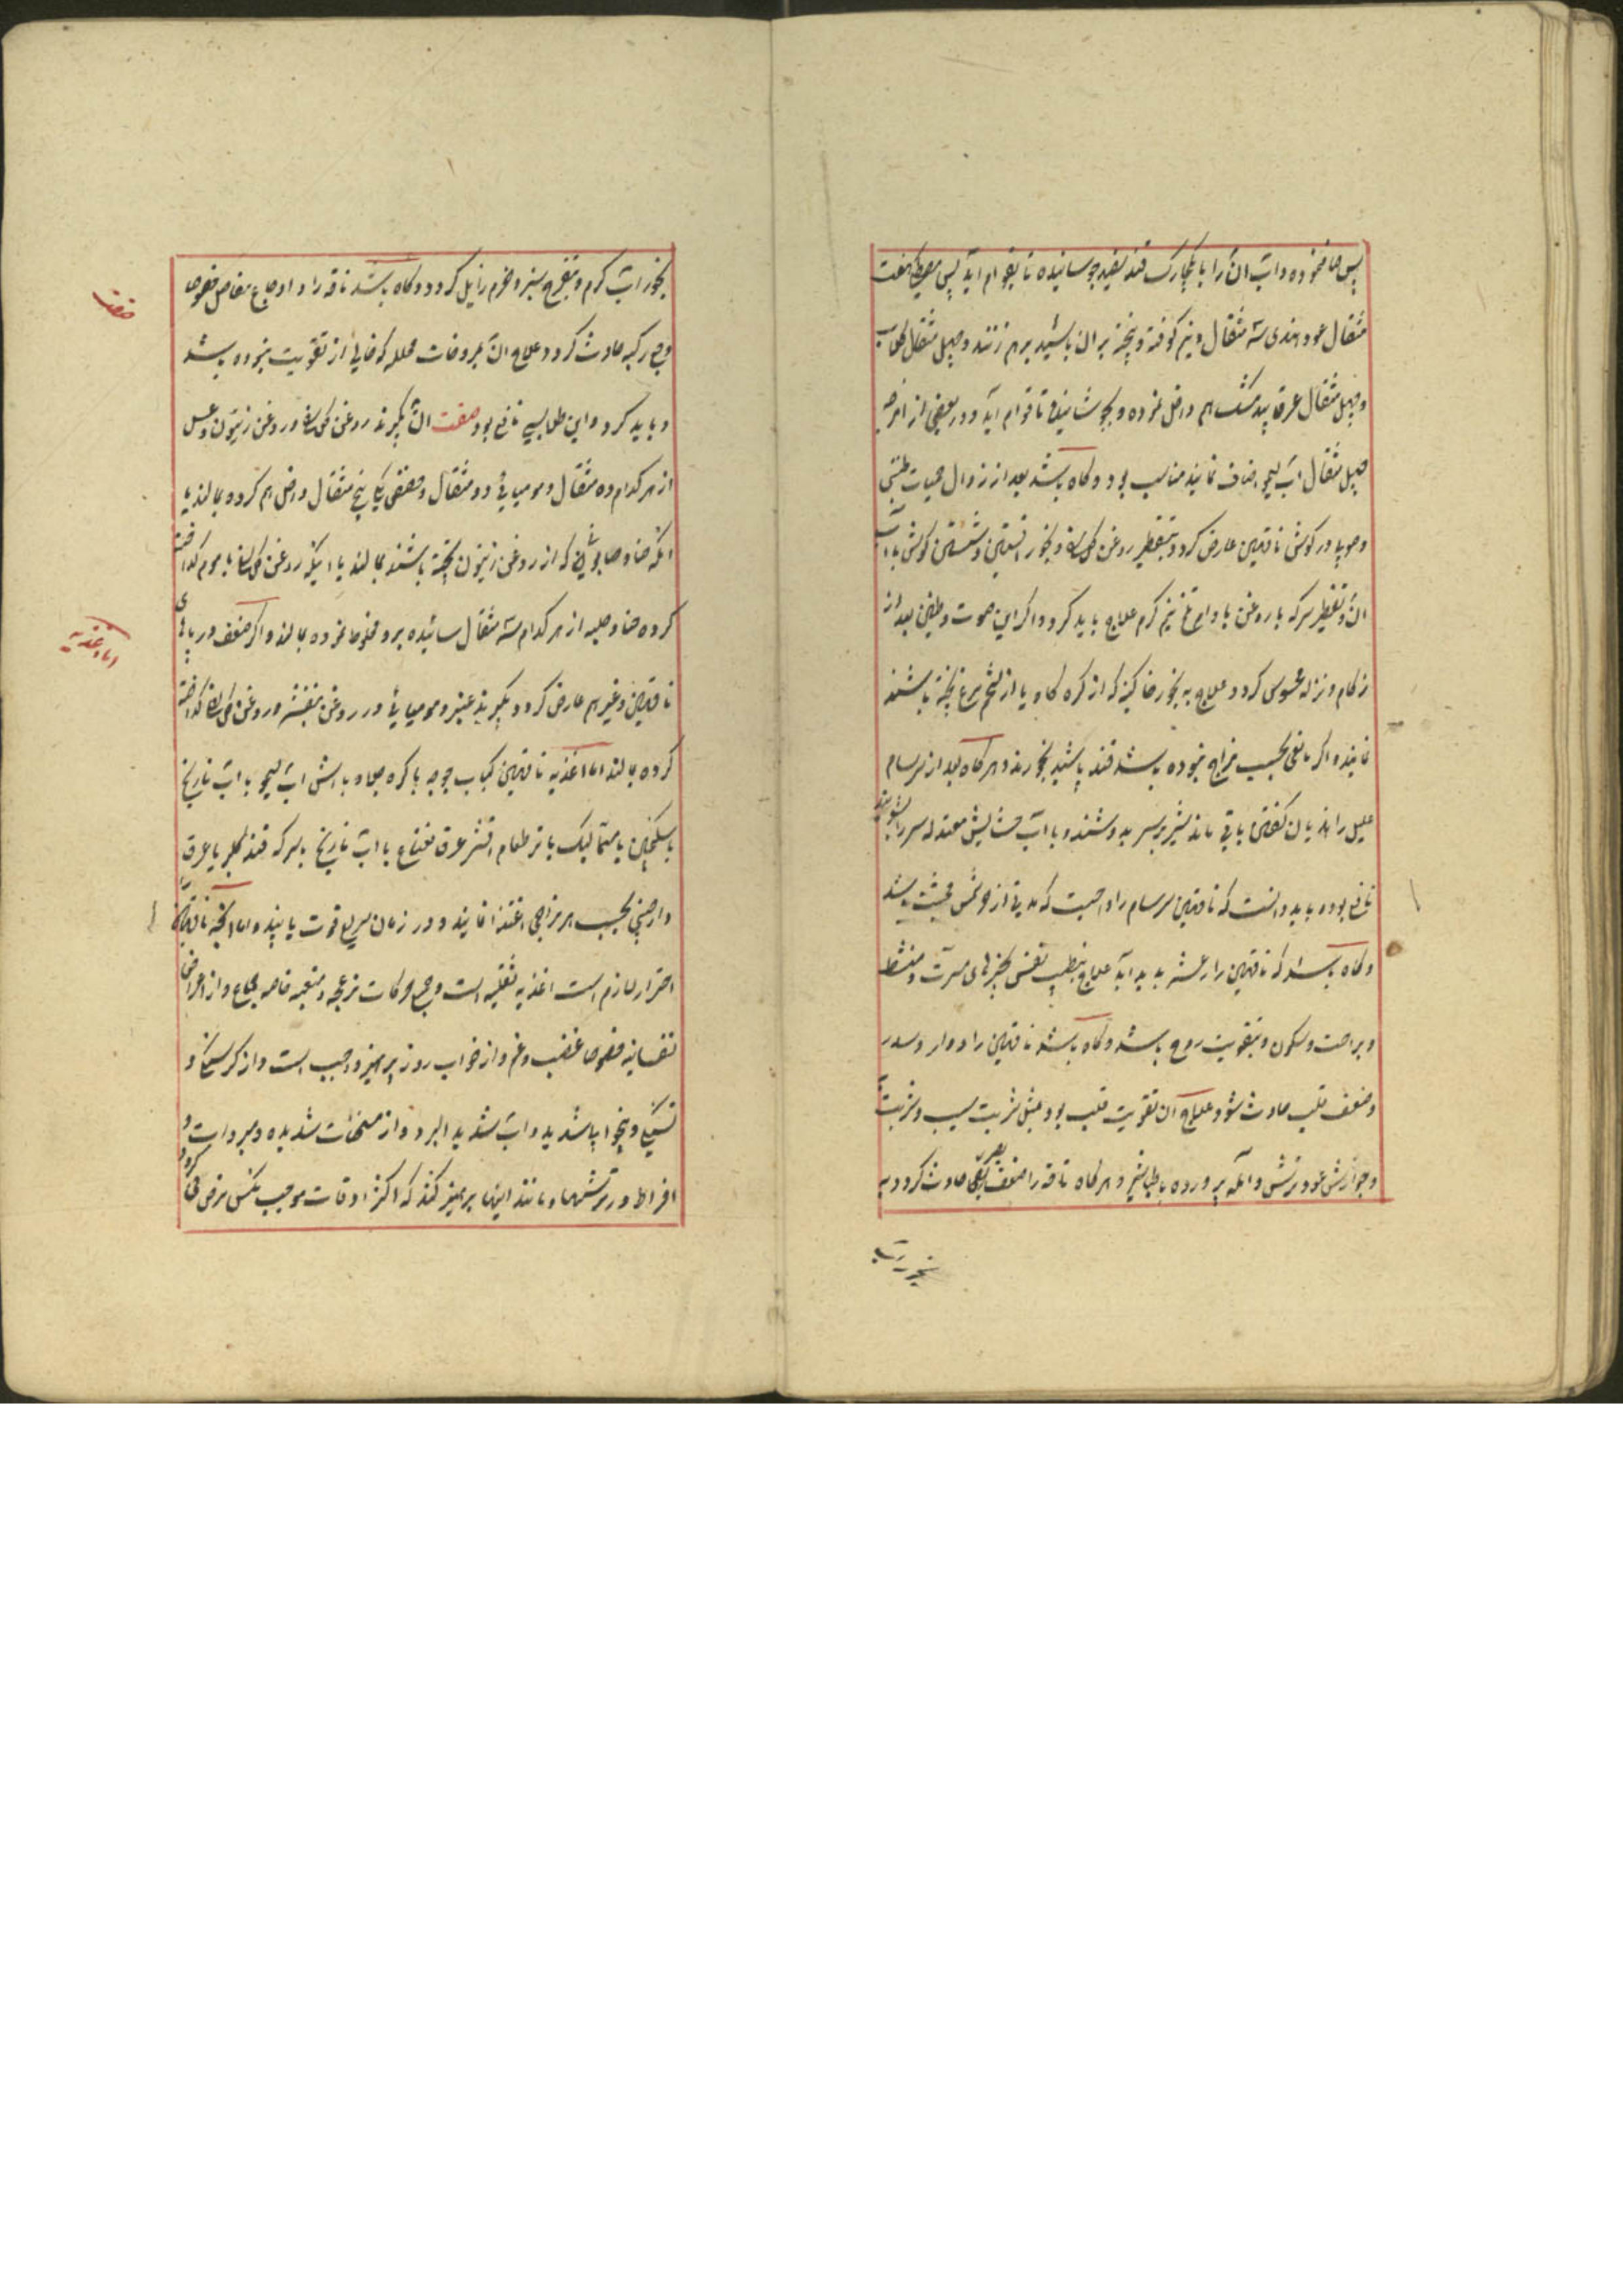 پس صاف نموده و آب آن را با یکچارک قند سفید جوشانیده تا بقوام آید پس مصطکی هفت
مثقال عود هندی سه مثقال و نیم کوفته و پخته بر آن پاشید برهم زنند و چهل مثقال گلاب
و چهل مثقال عرق بید مشک هم داخل نموده و بجوشانند تا قوام آید و در بعضی از امزجه
چهل مثقال آب لیمو اضافه نمایند مناسب بود و گاه باشد بعد از زوال حمیات طنینی
و دویی در گوش ناقهین عارض گردد بتقطیر روغن گل سرخ و بخور افسنتین و شستن گوش با آب
آن و تقطیر سرکه با روغن بادام تلخ نیم گرم علاج باید کرد و اگر این صوت و طنین بعد از
زکام و نزله محسوس گردد علاج به بخور خاگینه که از کره گاو یا از تخم مرغ پخته باشند
نمایند و اگر مانعی بحسب مزاج نبوده باشد قند پاشید بخورند و هرگاه بعد از سرسام
علیل را هذیان گفتن باقی ماند شیر بر سر بدوشند و با آب حشایش معتدله سر را بشویند
نافع بوده باید دانست که ناقهین سرسام را واجبست که مدتی از حرکت شمس مجتنب باشد
و گاه باشد که ناقهین را رعشه پدید آید علاج بتطییب نفس بچیزهای مسرت و منشط
و براحت و سکون و بتقویت روح باشد و گاه باشد ناقهین را دوار و سدر
و ضعف قلب حادث شود علاج آن تقویت قلب بود بمثل شربت سیب و شربت به
و جوارش عود ترش و آمله پرورده با طباشیر و هرگاه ناقه را ضعف بصر حادث گردد به
بخور آب
بخور آب گرم و بتفرج سبزه و خرم زایل گردد و گاه باشد ناقه را اوجاع مفاصل خصوصا
وجع رکبه حادث گردد علاج آن بمروخات محلله که خالی از تقویت نبوده باشد
باید کرد و این طلا بسی نافع بود صفت آن بگیرند روغن گل سرخ و روغن زیتون و عسل
از هر کدام ده مثقال و مومیایی دو مثقال و مصطکی پنج مثقال داخل هم کرده بمالند یا
آنکه حنا و صابونی که از روغن زیتون پخته باشند بمالند یا اینکه روغن گل سرخ با موم گداخته
کرده حنا و حلبه از هر کدام سه مثقال سائیده برو مخلوط نموده بمالند و اگر ضعف در پاهای
ناقهین و غیرهم عارض گردد بگیرند عنبر و مومیایی و در روغن بنفشه و روغن گل سرخ گداخته
کرده بمالند اما اغذیه ناقهین کباب جوجه با کره چلاو یا آش آب لیمو با آب نارنج
یا سکنجبین یا سماق لیک یا تر طعام افشره عرق نعناع یا آب نارنج یا سرکه قند مکرر یا عرق
دارچینی بحسب هر مزاجی اغتذا نمایند و در زمان سریع قوت یابند و اما آنچه ناقهین را
احتراز لازم است اغذیه ثقیله است و جمیع حرکات مزعجه و متعبه خاصه جماع و از اعراض
نفسانیه خصوصا غضب و غم و از خواب روز پرهیز واجب است و از گرسنگی و
تشنگی و بیخوابی شدید و آب شدید البرد و از مسخنات شدیده و مبردات و
افراط در ترشیها و مانند اینها پرهیز کنند که اکثر اوقات موجب نکس مرض میگردد
صفت
اما اغذیه